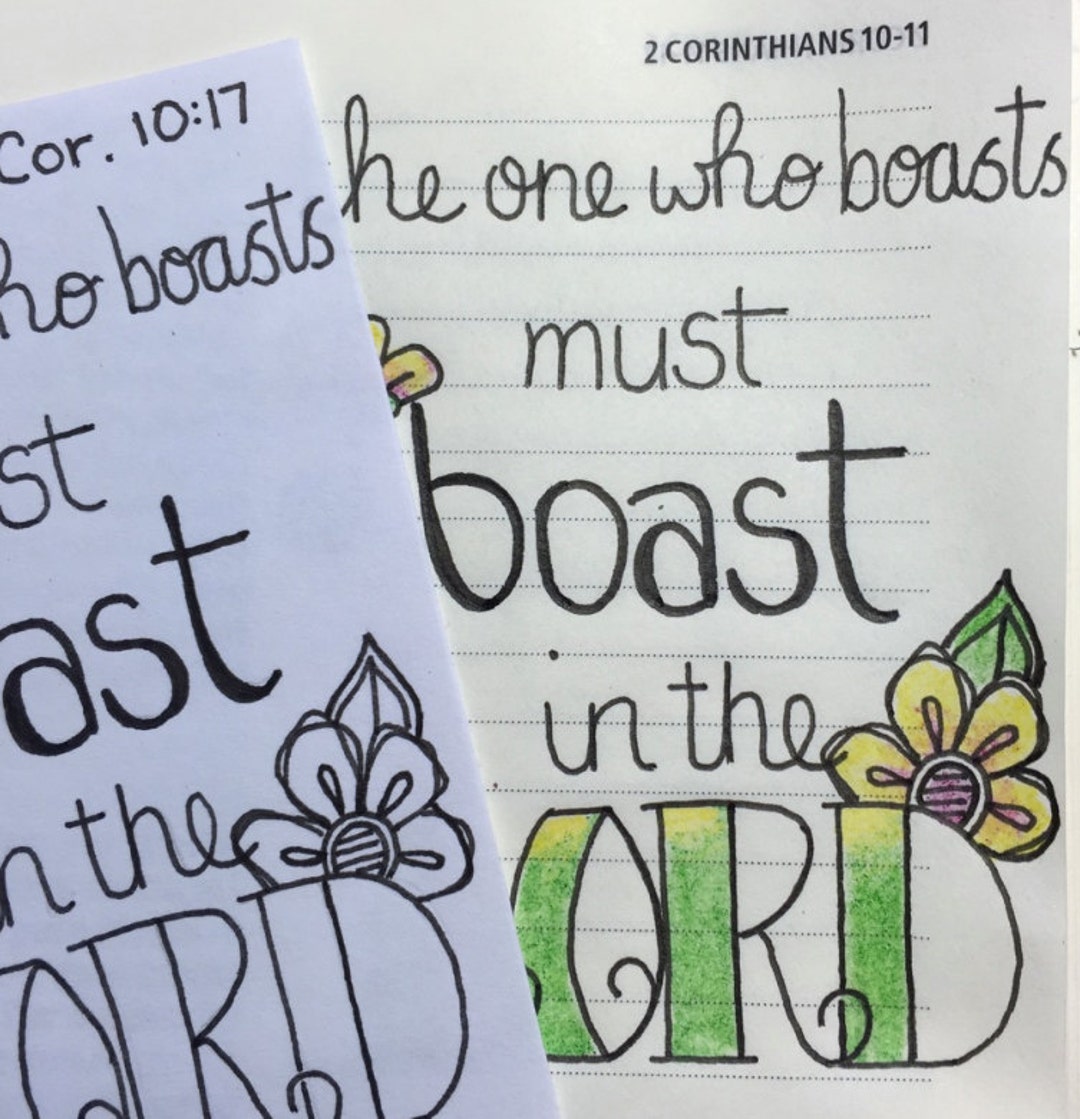 Cor. 10:17
ho boasts
st
ast
n the
ORD
2 CORINTHIANS 10-11
he one who boasts
must
boast
in the
ORD